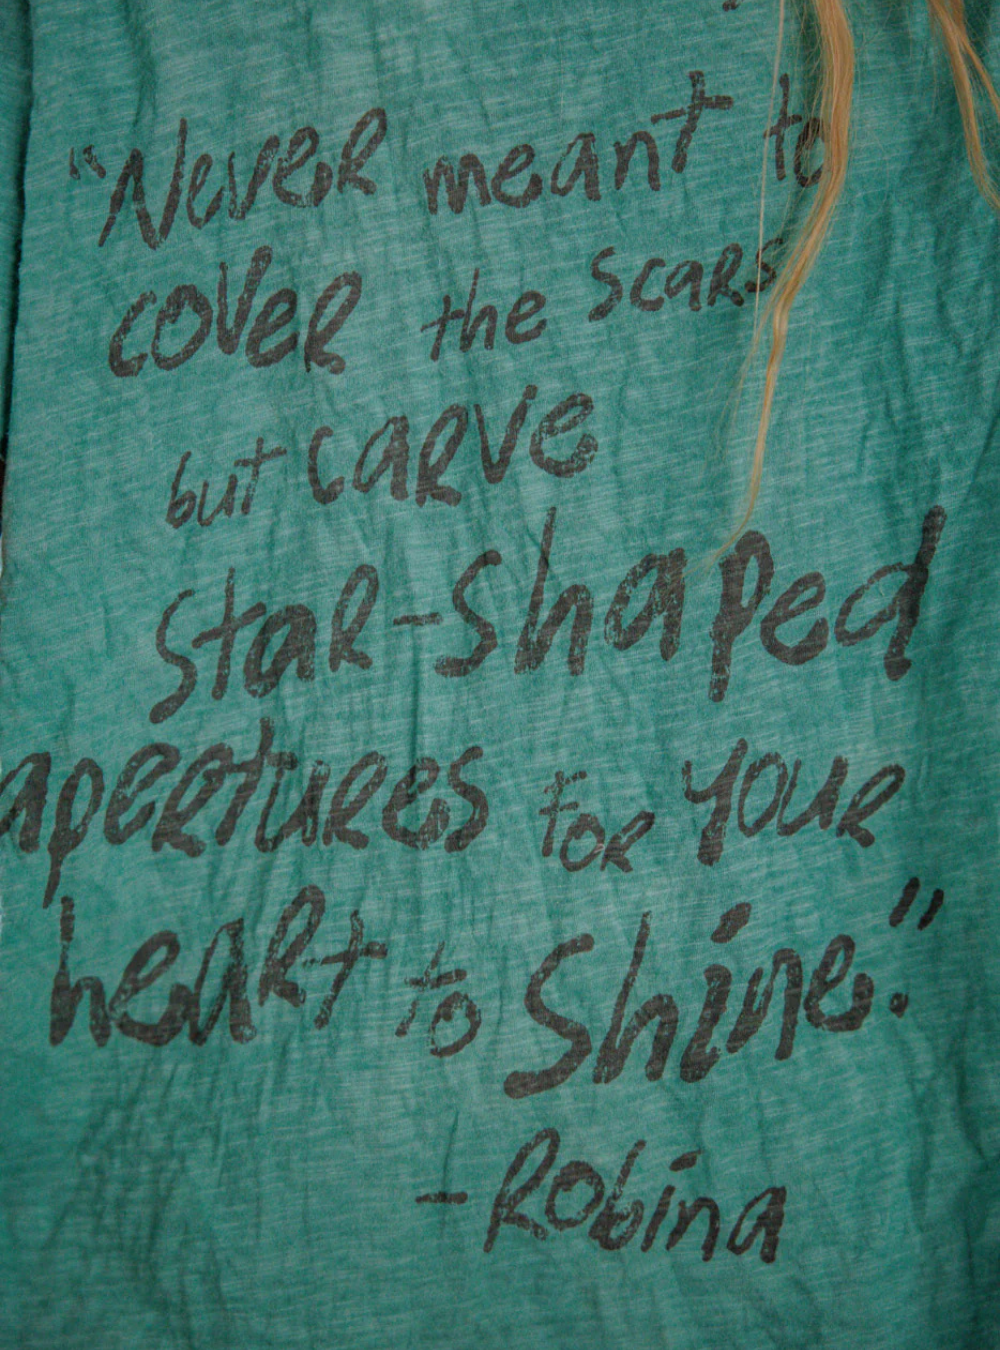 "Never meant to
cover the scars
but carve
star-shaped
apertures for your
heart to shine."
-Robina